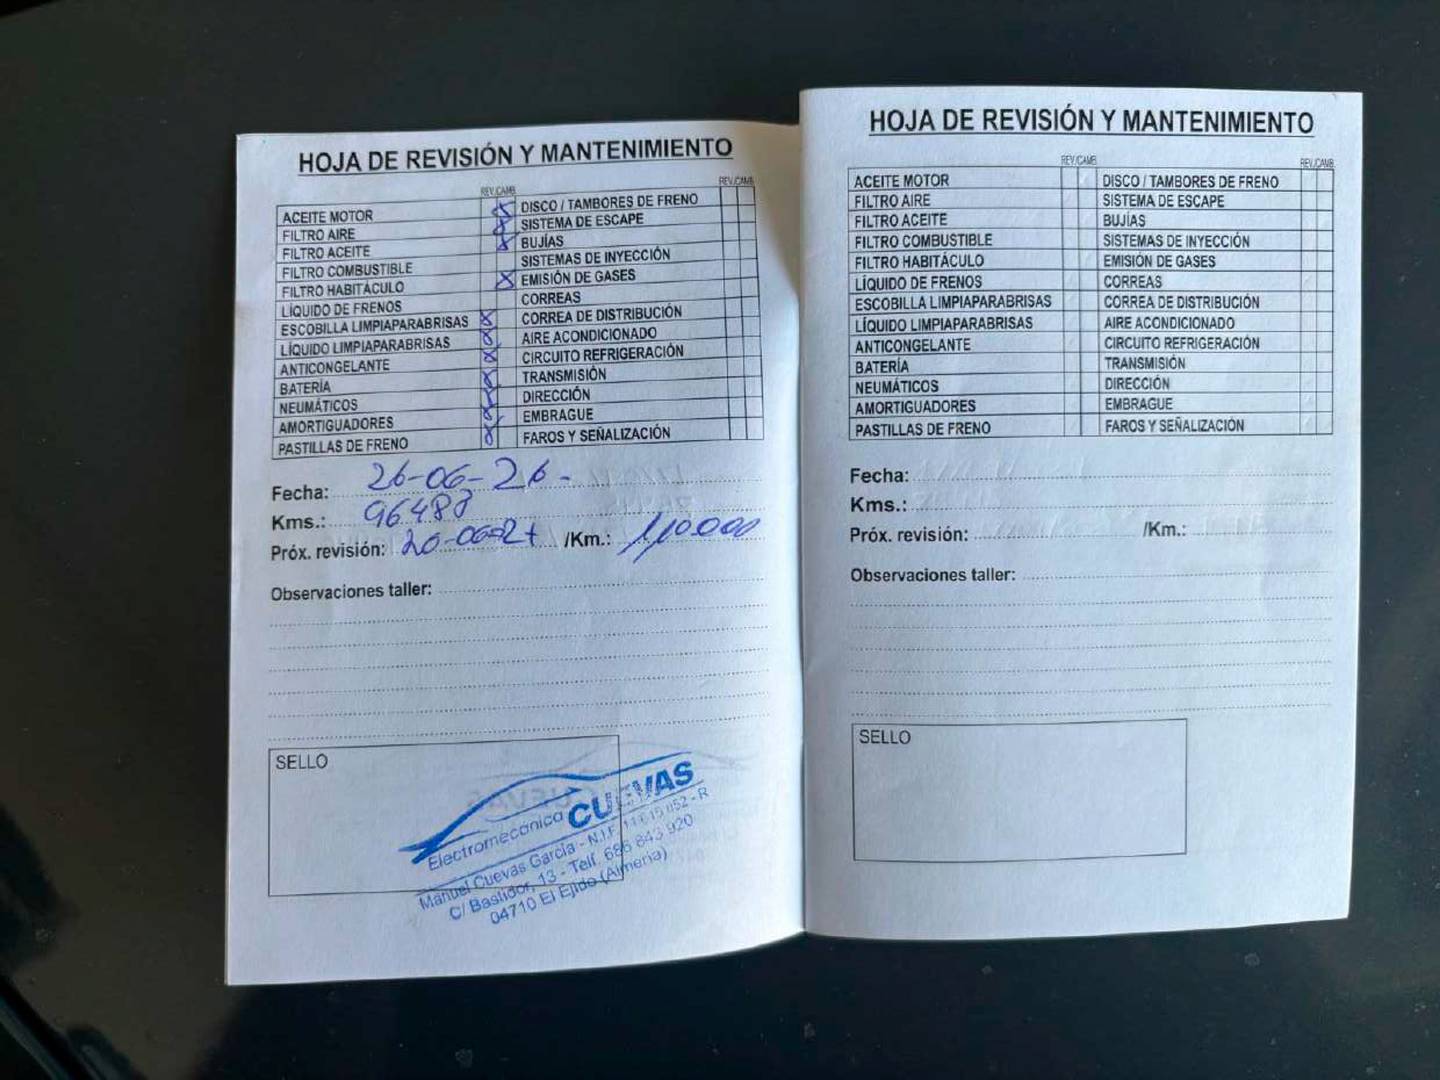 HOJA DE REVISIÓN Y MANTENIMIENTO
REV./CAMB. REV./CAMB.
ACEITE MOTOR X DISCO / TAMBORES DE FRENO
FILTRO AIRE X SISTEMA DE ESCAPE
FILTRO ACEITE X BUJÍAS
FILTRO COMBUSTIBLE SISTEMAS DE INYECCIÓN
FILTRO HABITÁCULO X EMISIÓN DE GASES
LÍQUIDO DE FRENOS CORREAS
ESCOBILLA LIMPIAPARABRISAS X CORREA DE DISTRIBUCIÓN
LÍQUIDO LIMPIAPARABRISAS X AIRE ACONDICIONADO
ANTICONGELANTE X CIRCUITO REFRIGERACIÓN
BATERÍA X TRANSMISIÓN
NEUMÁTICOS X DIRECCIÓN
AMORTIGUADORES X EMBRAGUE
PASTILLAS DE FRENO X FAROS Y SEÑALIZACIÓN
Fecha: 26-06-26.-
Kms.: 96483
Próx. revisión: 20-06-27 /Km.: 110.000
Observaciones taller:
SELLO
Electromecánica CUEVAS
Manuel Cuevas García - N.I.F.
C/ Bastidor, 13 - Telf. 686 843 920
04710 El Ejido (Almería)
HOJA DE REVISIÓN Y MANTENIMIENTO
REV./CAMB. REV./CAMB.
ACEITE MOTOR DISCO / TAMBORES DE FRENO
FILTRO AIRE SISTEMA DE ESCAPE
FILTRO ACEITE BUJÍAS
FILTRO COMBUSTIBLE SISTEMAS DE INYECCIÓN
FILTRO HABITÁCULO EMISIÓN DE GASES
LÍQUIDO DE FRENOS CORREAS
ESCOBILLA LIMPIAPARABRISAS CORREA DE DISTRIBUCIÓN
LÍQUIDO LIMPIAPARABRISAS AIRE ACONDICIONADO
ANTICONGELANTE CIRCUITO REFRIGERACIÓN
BATERÍA TRANSMISIÓN
NEUMÁTICOS DIRECCIÓN
AMORTIGUADORES EMBRAGUE
PASTILLAS DE FRENO FAROS Y SEÑALIZACIÓN
Fecha:
Kms.:
Próx. revisión: /Km.:
Observaciones taller:
SELLO